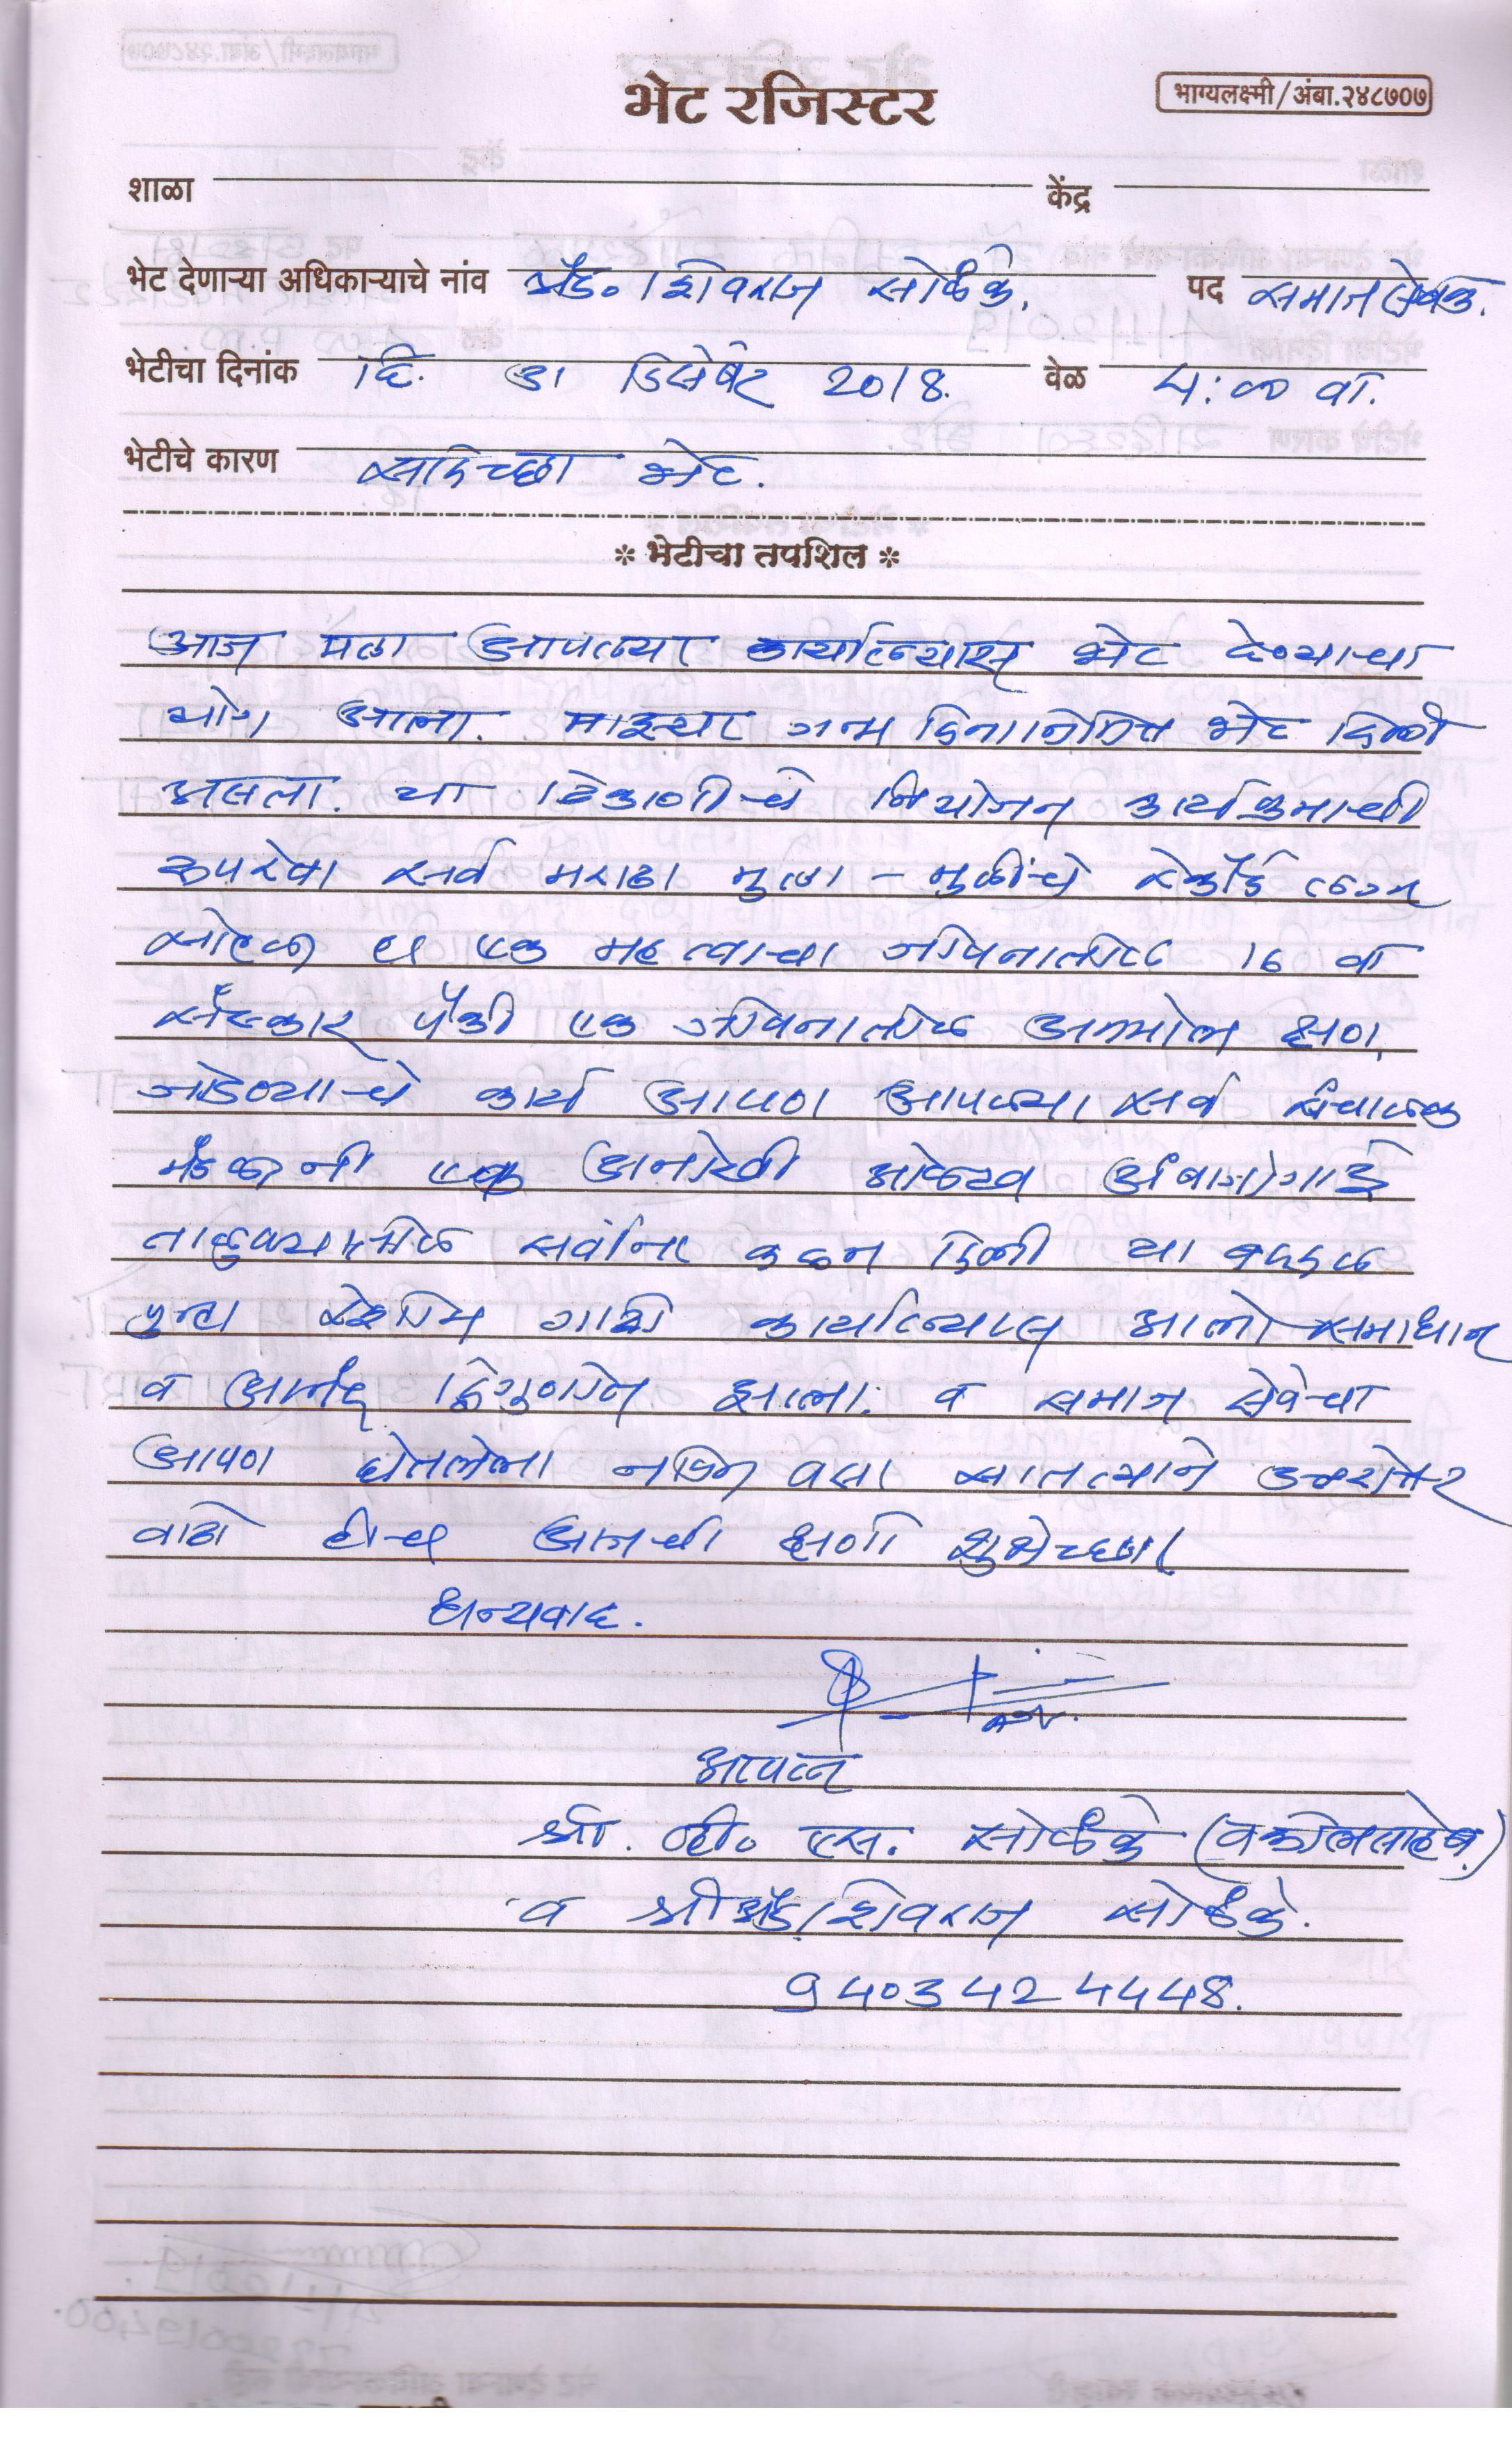 भेट रजिस्टर
भाग्यलक्ष्मी/अंबा.२४८७०७
शाळा केंद्र
भेट देणाऱ्या अधिकाऱ्याचे नांव अ‍ॅड. शिवराज सोळंके. पद समाजसेवक.
भेटीचा दिनांक दि. 31 डिसेंबर 2018. वेळ 4:00 वा.
भेटीचे कारण सदिच्छा भेट.
* भेटीचा तपशिल *
आज मला आपल्या कार्यालयास भेट देण्याचा
योग आला. माझ्या जन्म दिनानिमित्त भेट दिली
असता. या ठिकाणीचे नियोजन कार्यक्रमाची
रूपरेषा सर्व मराठा मुला - मुलींचे रेकॉर्ड लग्न
सोहळा हा एक महत्वाचा जीवनातील 16 वा
संस्कार पैकी एक जीवनातील अनमोल क्षण,
जोडण्याचे कार्य आपण आपल्या सर्व संचालक
मंडळानी एक अनोखी ओळख अंबाजोगाई
तालुक्यातील सर्वांना करून दिली या बद्दल
पुन्हा रेशीम गाठी कार्यालयास आलो समाधान
व आनंद द्विगुणीत झाला. व समाज सेवेचा
आपण घेतलेला नविन वसा सातत्याने उत्तरोत्तर
वाढो हीच आजची क्षणी शुभेच्छा
धन्यवाद.
आपला
श्री. व्ही. एस. सोळंके (वकीलसाहेब)
व श्री अ‍ॅड. शिवराज सोळंके.
9403424448.